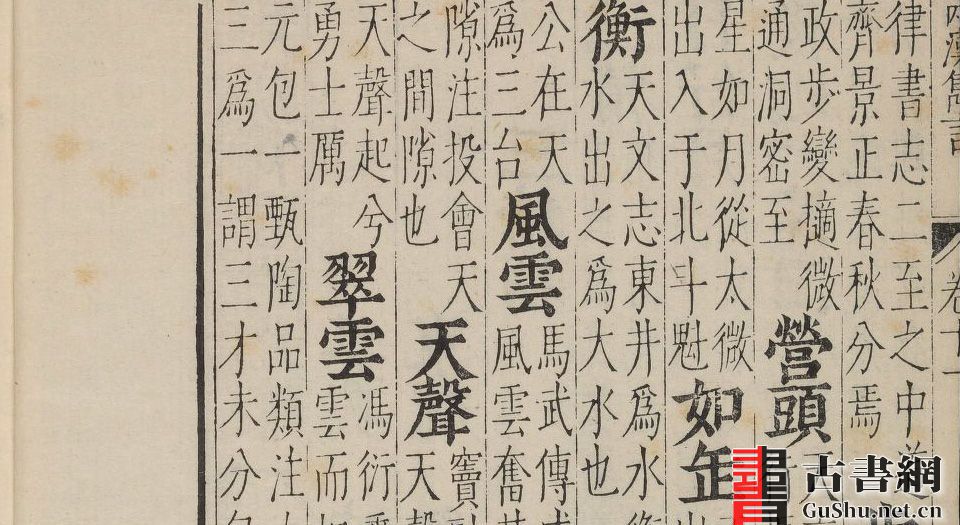 卷十
律書志二至之中
齊景正春秋分焉
政步變擿微
通洞密至
營頭
天
星如月從太微
出入于北斗魁
如缶
衡
天文志東井爲水
水出之爲大水也
公在天
爲三台
風雲
馬武傳
風雲奮
隙注投會天
之間隙也
天聲
竇
天聲
天聲起兮
勇士厲
翠雲
馮衍
雲而
元包一甄陶品類注
三爲一謂三才未分
古書網
GuShu.net.cn